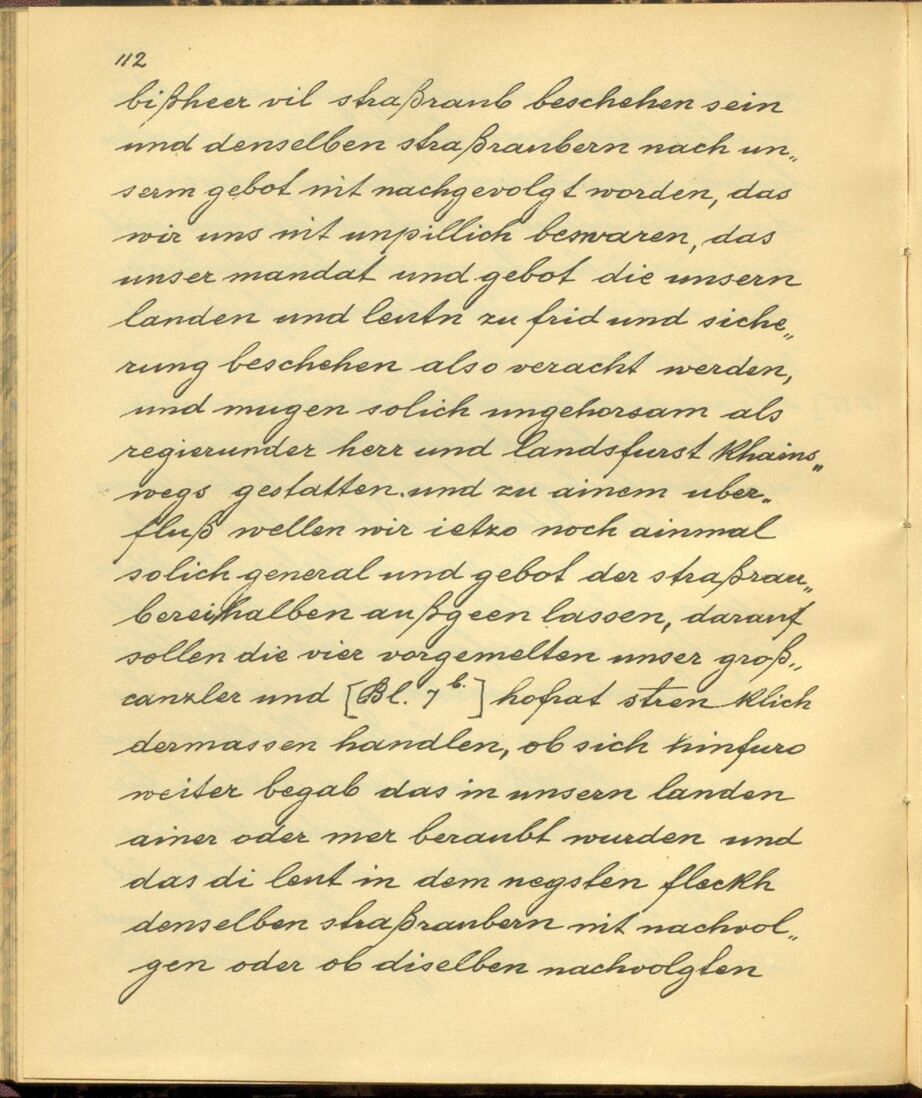 112
bißheer vil straßraub beschehen sein
und denselben straßraubern nach un„
serm gebot nit nachgevolgt worden, das
wir uns nit unpillich beswaren, das
unser mandat und gebot die unsern
landen und leutn zu frid und siche„
rung beschehen also veracht werden,
und mugen solich ungehorsam als
regierunder herr und landsfurst khains„
wegs gestatten. und zu ainem uber„
fluß wellen wir ietzo noch ainmal
solich general und gebot der straßrau„
berei halben außgeen lassen, darauf
sollen die vier vorgemelten unser groß„
canzler und [Bl. 7 b.] hofrat strenklich
dermassen handlen, ob sich hinfuro
weiter begab das in unsern landen
ainer oder mer beraubt wurden und
das di leut in dem negsten fleckh
denselben straßraubern nit nachvol„
gen oder ob diselben nachvolgten